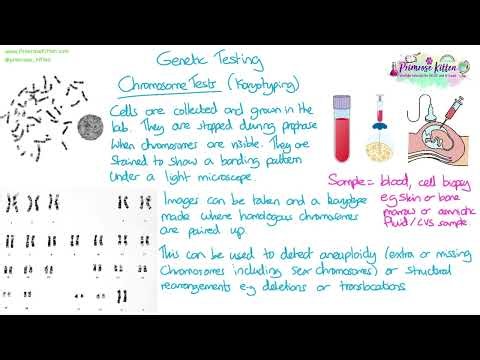 www.PrimroseKitten.com
@primrose_kitten
Genetic Testing
Primrose Kitten
Chromosome Tests (Karyotyping)
Cells are collected and grown in the
lab. They are stopped during prophase
when chromosomes are visible. They are
stained to show a banding pattern
under a light microscope.
Sample = blood, cell biopsy
e.g skin or bone
marrow or amniotic
fluid/CVS sample
Images can be taken and a karyotype
made where homologous chromosomes
are paired up.
This can be used to detect aneuploidy (extra or missing
Chromosomes including sex chromosomes) or structural
rearrangements e.g deletions or translocations